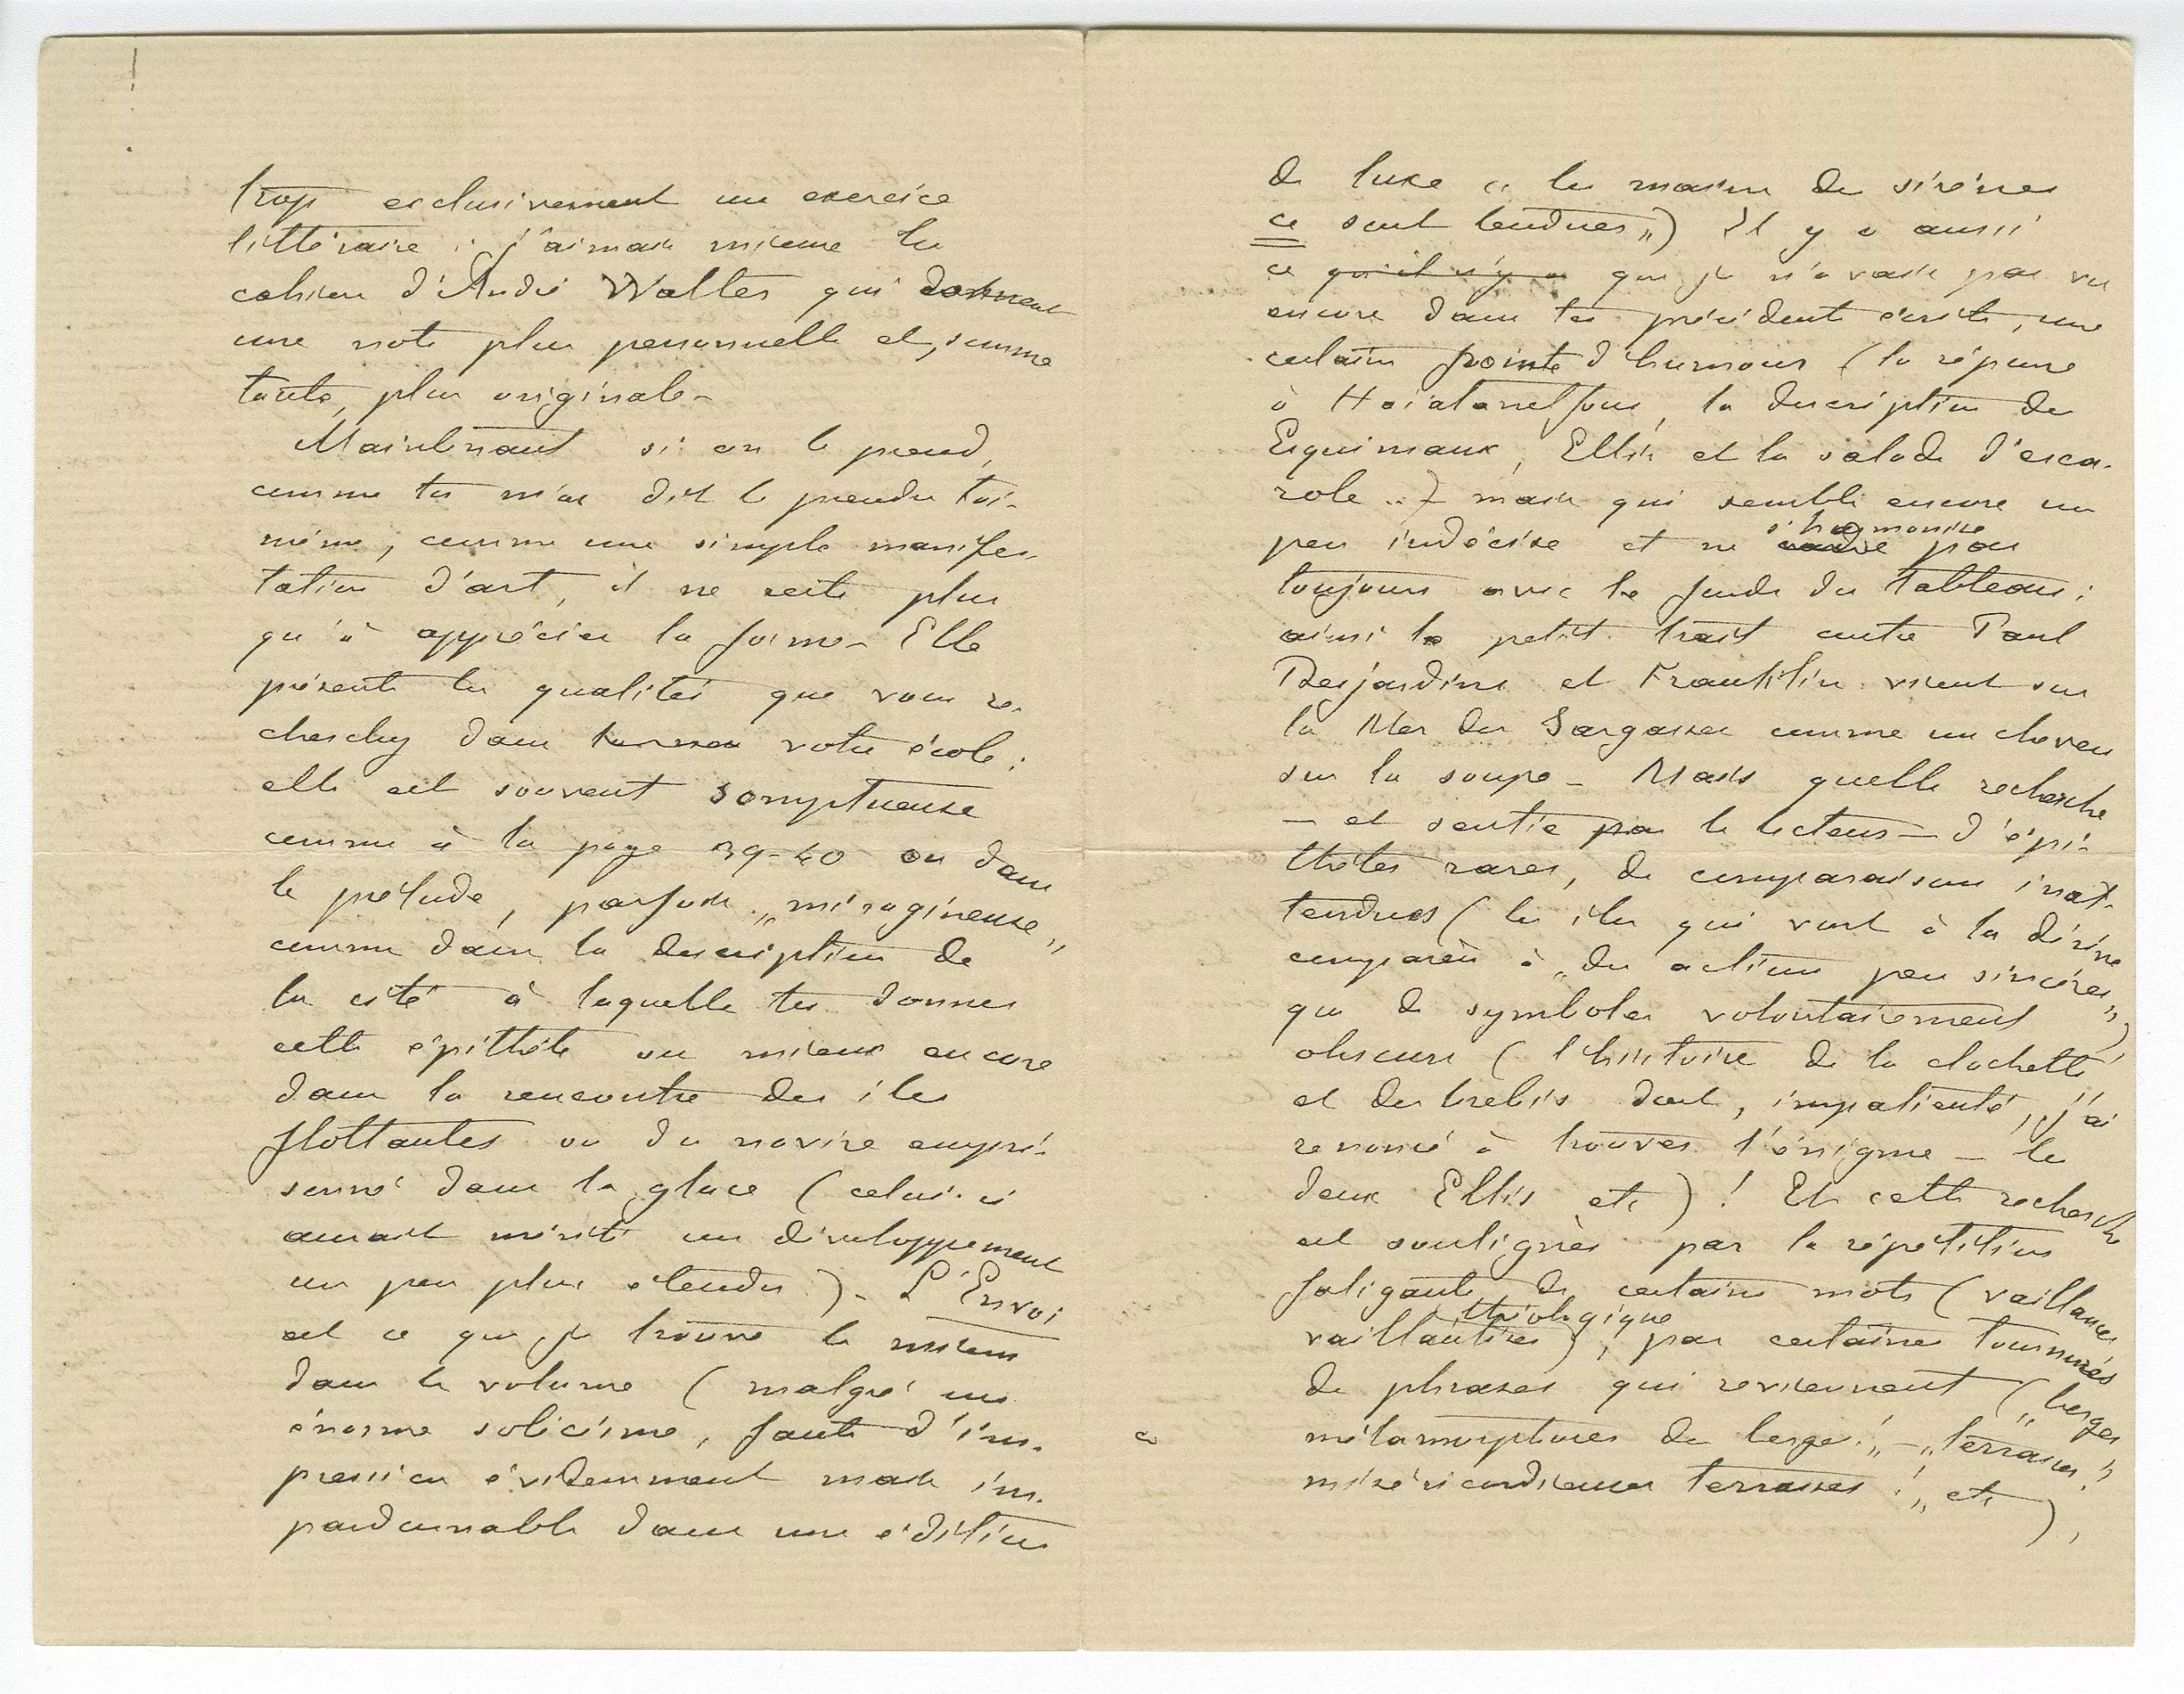 trop exclusivement un exercice
littéraire : j'aimais mieux les
cahiers d'André Walter qui donnent
une note plus personnelle et, somme
toute, plus originale –
Maintenant si on le prend,
comme tu m'as dit le prendre toi-
même, comme une simple manifes-
tation d'art, il ne reste plus
qu'à apprécier la forme – Elle
présente les qualités que vous re-
cherchez dans votre école :
elle est souvent somptueuse
comme à la page 39-40 ou dans
le prélude, parfois „miragineuse„
comme dans la description de
la cité à laquelle tu donnes
cette épithète ou mieux encore
dans la rencontre des îles
flottantes ou du navire empri-
sonné dans la glace (celui-ci
aurait mérité un développement
un peu plus étendu) – L'Envoi
est ce que je trouve le mieux
dans le volume (malgré un
énorme solécisme, faute d'im-
pression évidemment mais im-
pardonnable dans une édition
de luxe „ les maisons de sirènes
ce sont tendues„) Il y a aussi
ce qu'il n'y a que je n'avais pas vu
encore dans tes précédents écrits, une
certaine pointe d'humour (la réponse
à Hoïatanelfous, la description des
Esquimaux, Ellis et la salade d'esca-
role ..) mais qui semble encore un
peu indécise et ne s'harmonise pas
toujours avec le fonds du tableau ;
ainsi le petit trait entre Paul
Desjardins et Franklin vient sur
la Mer des Sargasses comme un cheveu
sur la soupe – Mais quelle recherche
– et sentie par le lecteur – d'épi-
thètes rares, de comparaisons inat-
tendues (les îles qui vont à la dérive
comparées à „des actions peu sincères„)
que de symboles volontairement
obscurs (l'histoire de la clochette
et des brebis dont, impatienté, j'ai
renoncé à trouver l'énigme – les
deux Ellis etc) ! Et cette recherche
est soulignée par la répétition
fatigante de certains mots (vaillances,
vaillantises, théologique), par certaines tournures
de phrases qui reviennent („berges
métamorphoses de berges !„ – „terrasses !
miséricordieuses terrasses !„ etc),